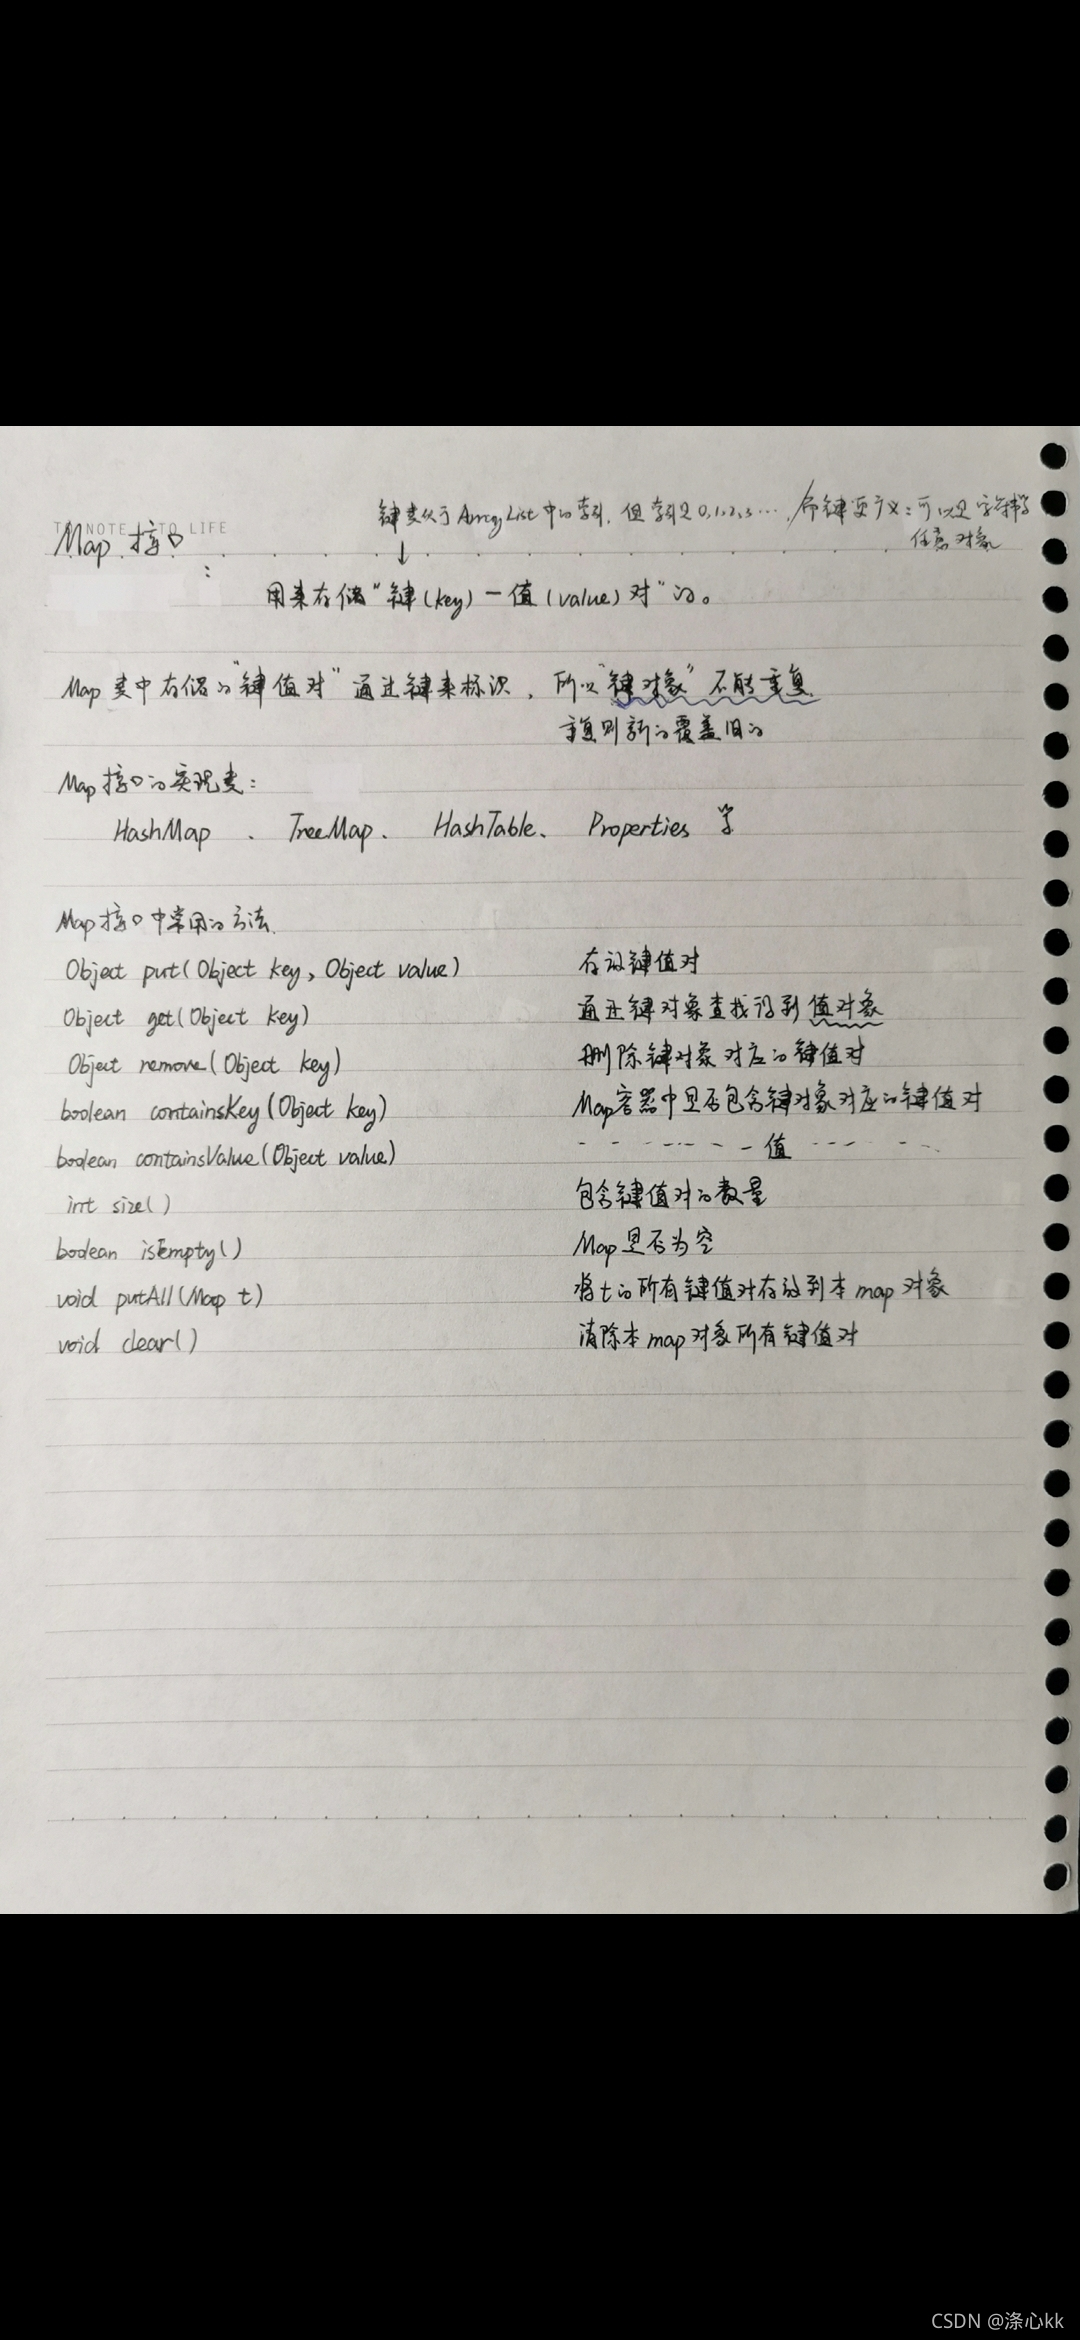 键类似于ArrayList中的索引，但索引是0,1,2,3…，而键更广义：可以是字符串等
任意对象
TO NOTE TO LIFE
Map 接口
：
用来存储“键(key)－值(value)对”的。
Map类中存储的“键值对”通过键来标识，所以“键对象”不能重复.
重复则新的覆盖旧的
Map接口的实现类：
HashMap 、 TreeMap、 HashTable、 Properties 等
Map接口中常用的方法.
Object put(Object key, Object value) 存放键值对
Object get(Object key) 通过键对象查找得到值对象
Object remove(Object key) 删除键对象对应的键值对
boolean containsKey(Object key) Map容器中是否包含键对象对应的键值对
boolean containsValue(Object value) - - - - - - - 值 - - - - -
int size() 包含键值对的数量
boolean isEmpty() Map是否为空
void putAll(Map t) 将t的所有键值对存放到本map对象
void clear() 清除本map对象所有键值对
CSDN @涤心kk